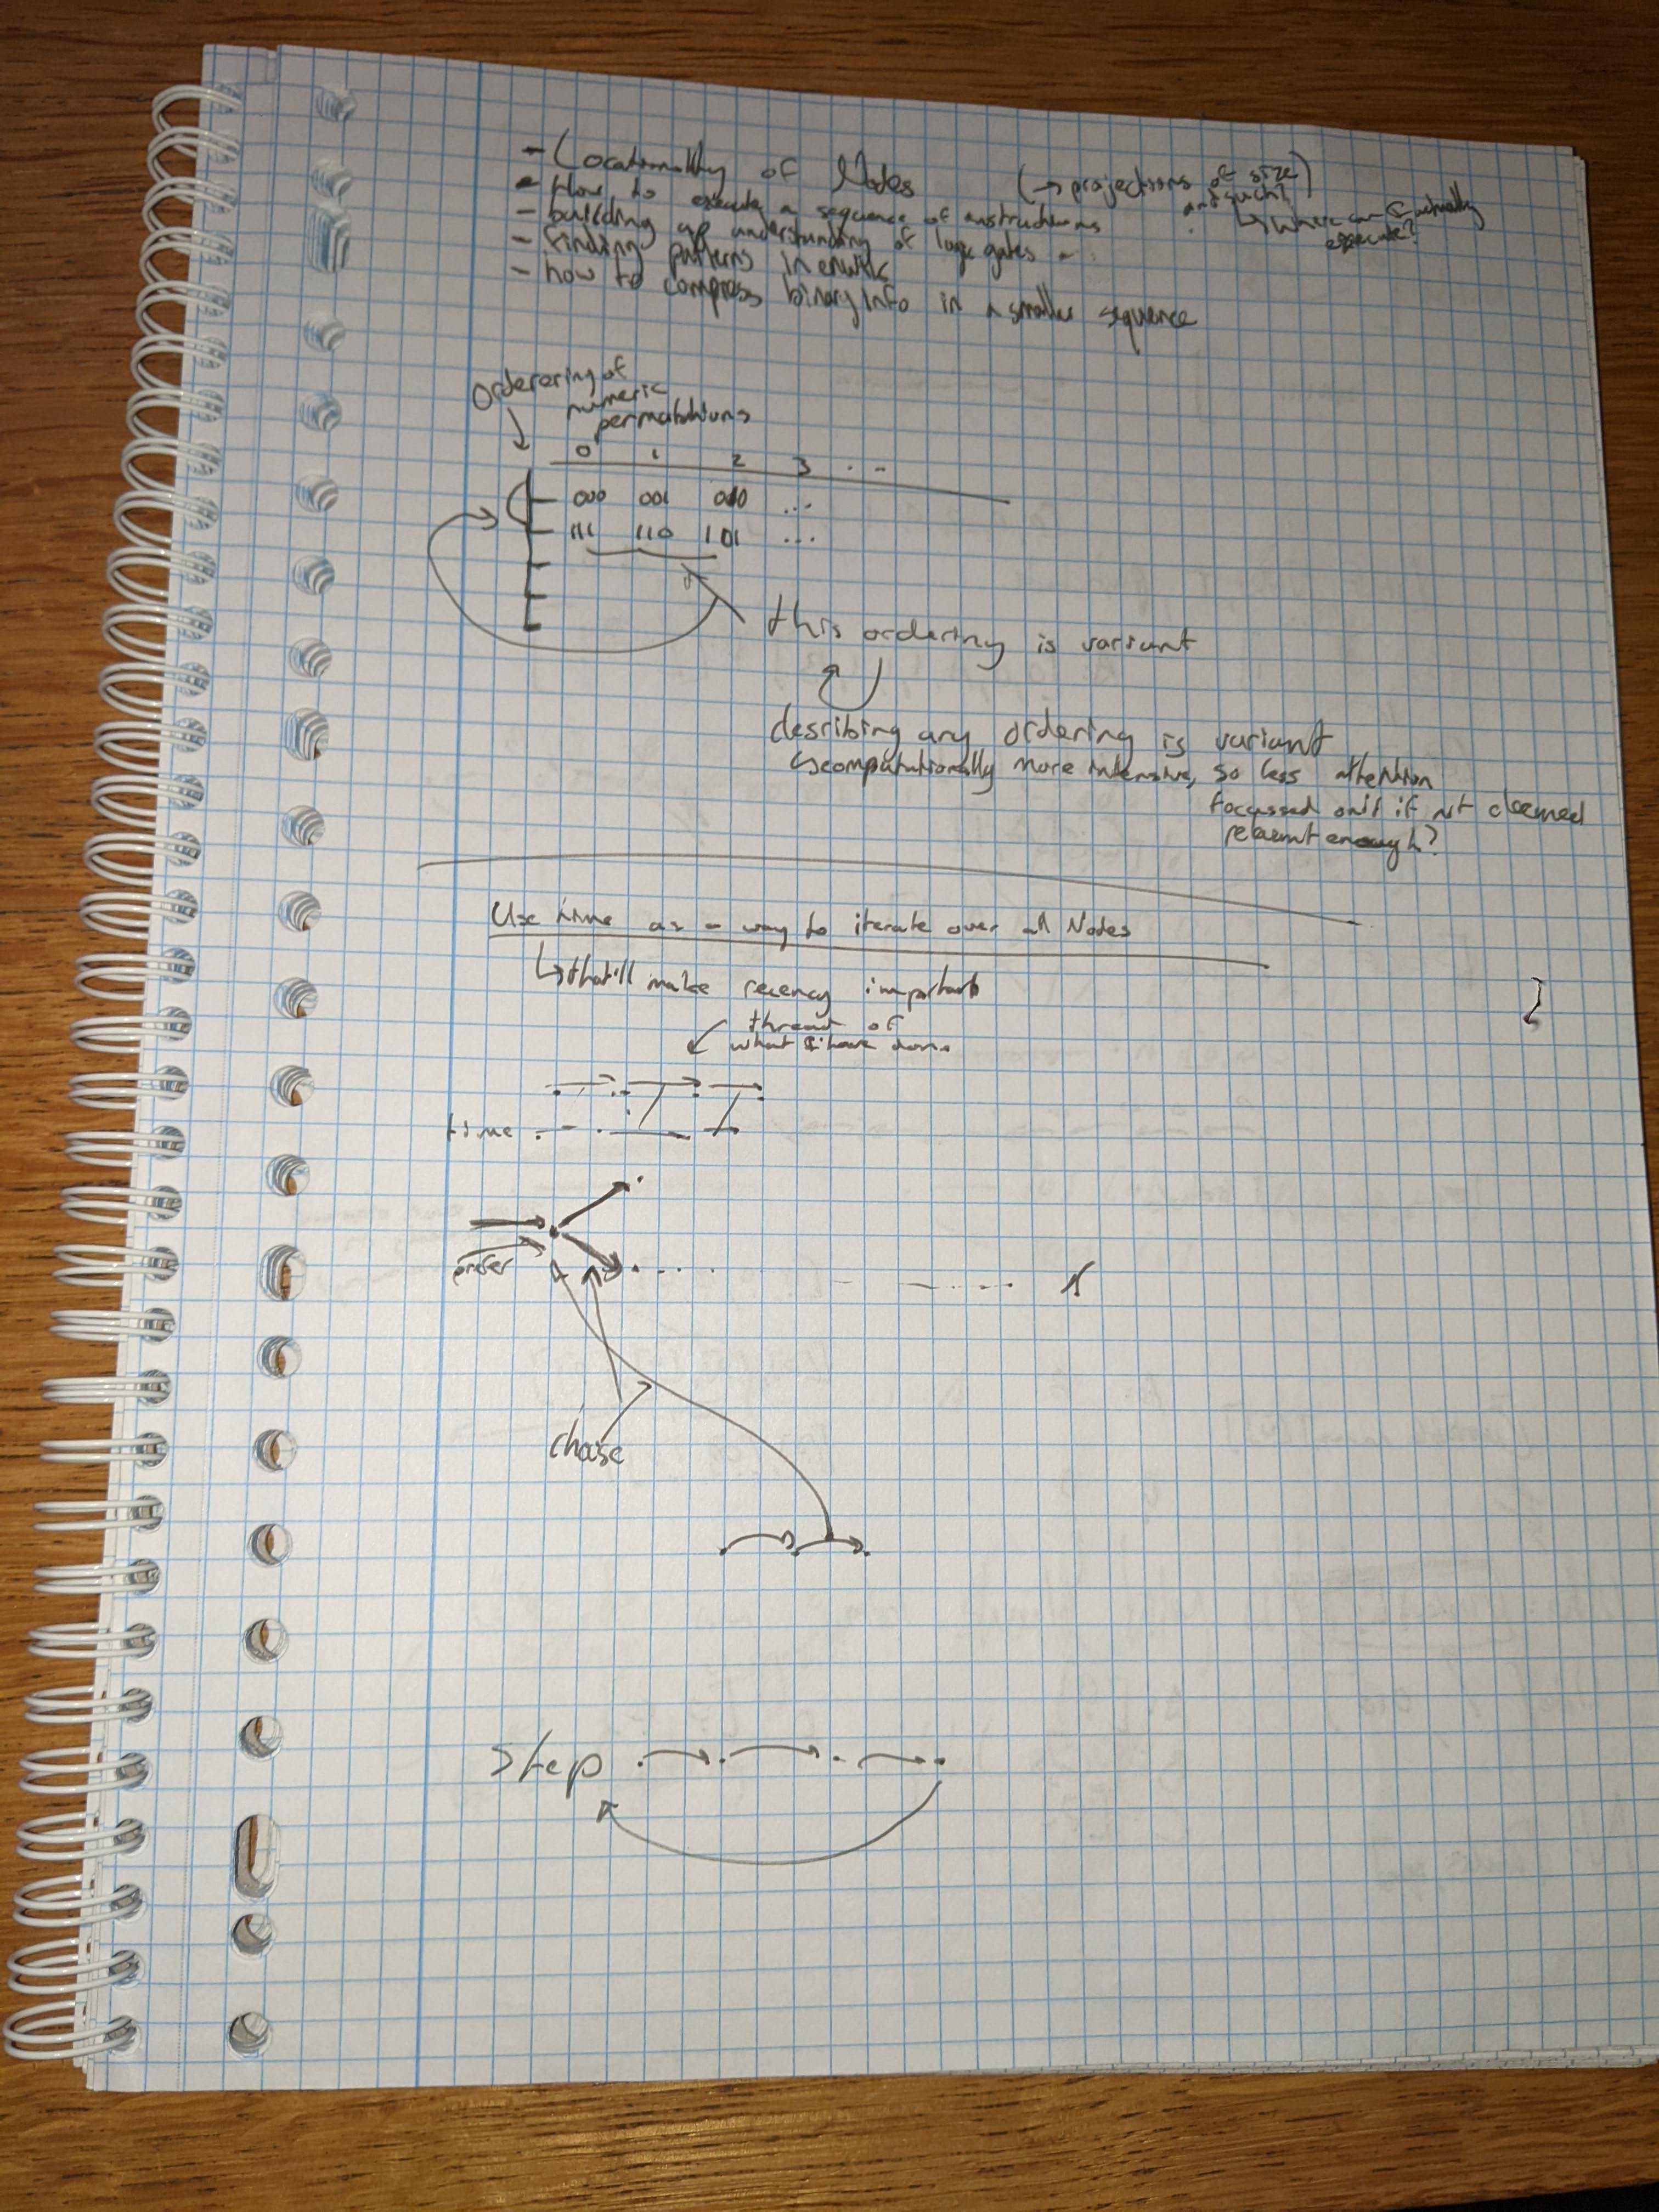 - Locationality of Nodes (→ projections of size)
and such?
- How to execute a sequence of instructions ↳ Where can I actually
execute?
- building up understanding of logic gates
- Finding patterns in enwik
- how to compress binary info in a smaller sequence
Orderering of
numeric
permutations
0 1 2 3 ...
000 001 010 ...
111 110 101 ...
this ordering is variant
describing any ordering is variant
↳ computationally more intensive, so less attention
focussed on it if not deemed
relevant enough?
Use time as a way to iterate over all Nodes
↳ that'll make recency important
thread of
what I have done
time
prefer
choise
Step